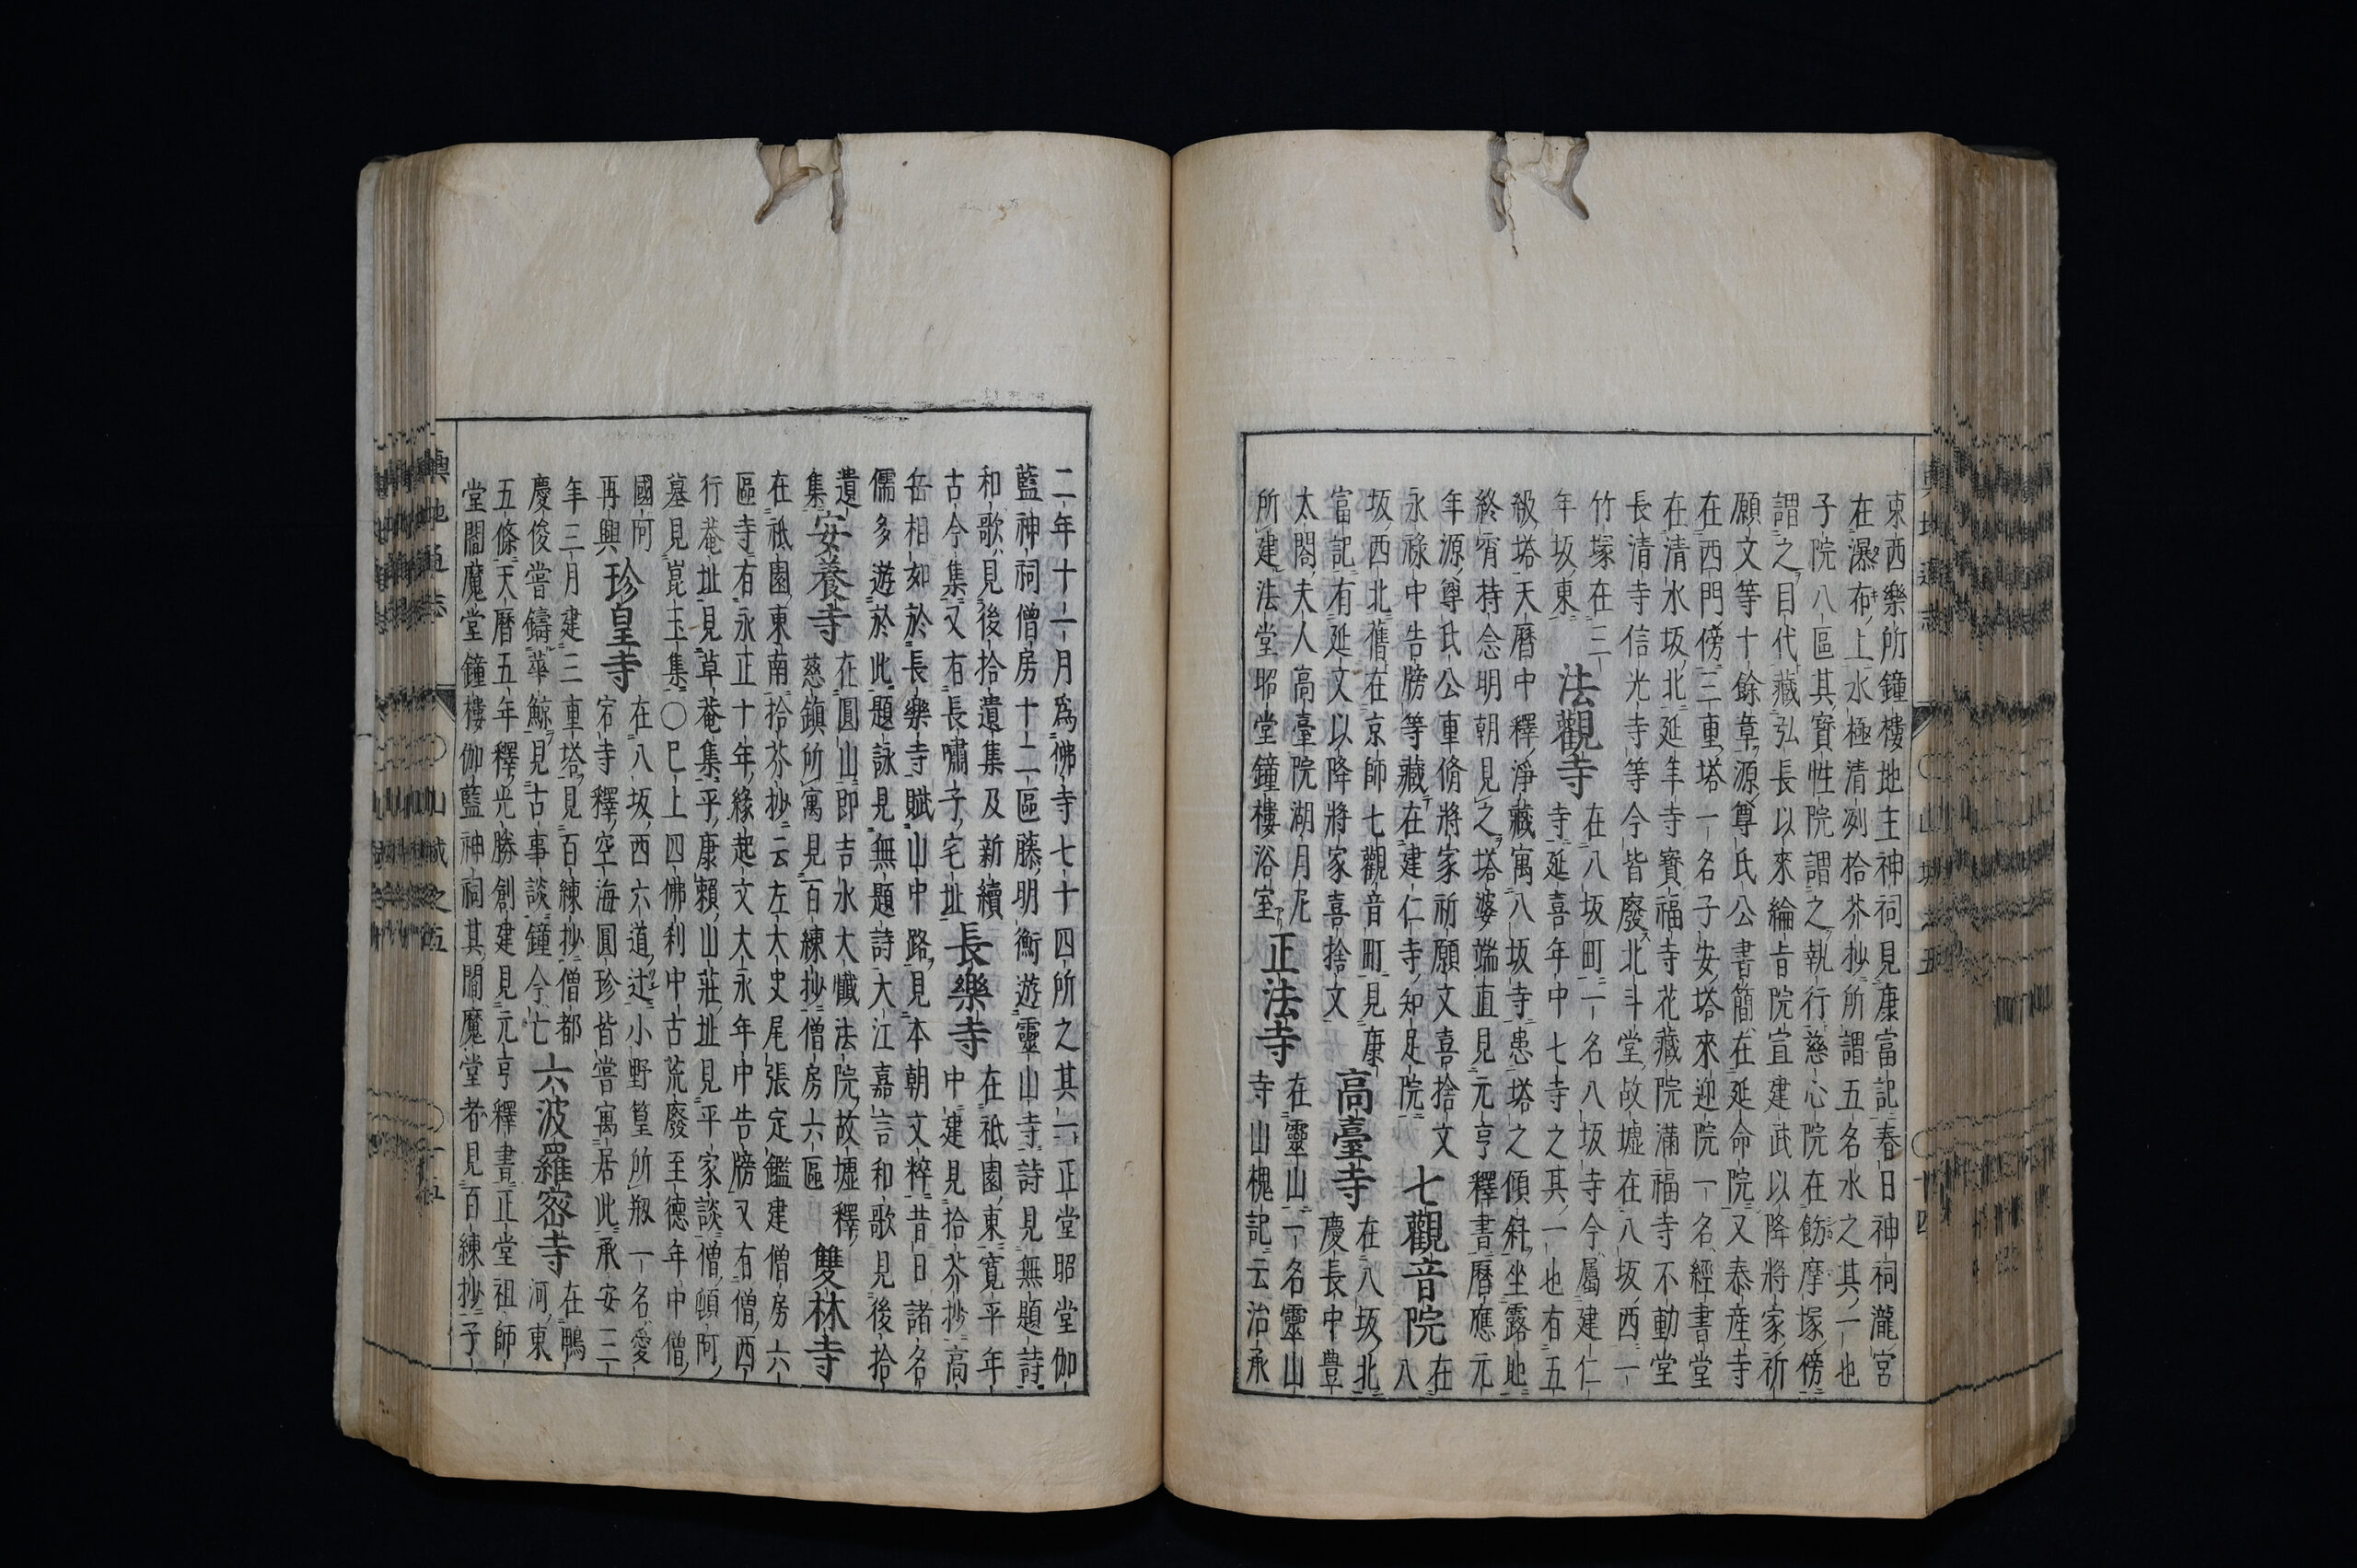 東西樂所鐘樓地主神祠見康富記春日神祠瀧宮
在瀑布上水極清冽拾芥抄所謂五名水之其一也
子院八區其實性院謂之執行慈心院在餝摩塚傍
謂之目代藏弘長以來綸旨院宣建武以降將家祈
願文等十餘章源尊氏公書簡在延命院又泰産寺
在西門傍三重塔一名子安塔來迎院一名經書堂
在清水坂北延年寺寶福寺花藏院滿福寺不動堂
長清寺信光寺等今皆廢北斗堂故墟在八坂西一
竹塚在三
年坂東
法觀寺
在八坂町一名八坂寺今屬建仁
寺延喜年中七寺之其一也有五
級塔天曆中釋淨藏寓八坂寺患塔之傾斜坐露地
終宵持念明朝見之塔婆端直見元亨釋書曆應元
年源尊氏公重脩將家祈願文喜捨文
永祿中告牓等藏在建仁寺知足院
七觀音院
在
八
坂西北舊在京師七觀音町見康
富記有延文以降將家喜捨文
高臺寺
在八坂北
慶長中豊
太閤夫人高臺院湖月尼
所建法堂昭堂鐘樓浴室
正法寺
在靈山一名靈山
寺山槐記云治承
輿地通志
山城之五
十四
二年十一月為佛寺七十四所之其一正堂昭堂伽
藍神祠僧房十二區藤明衡遊靈山寺詩見無題詩
和歌見後拾遺集及新續
古今集又有長嘯子宅址
長樂寺
在祇園東寬平年
中建見拾芥抄高
岳相如於長樂寺賦山中路見本朝文粹昔日諸名
儒多遊於此題詠見無題詩大江嘉言和歌見後拾
遺
集
安養寺
在圓山即吉水大懺法院故墟釋
慈鎮所寓見百練抄僧房六區
雙林寺
在祇園東南拾芥抄云左大史尾張定鑑建僧房六
區寺有永正十年緣起文大永年中告牓又有僧西
行菴址見草菴集平康賴山莊址見平家談僧頓阿
墓見崑玉集○巳上四佛利中古荒廢至德年中僧
國阿
再興
珍皇寺
在八坂西六道辻小野篁所剏一名愛
宕寺釋空海圓珍皆嘗寓居此承安三
年三月建三重塔見百練抄僧都
慶俊嘗鑄華鯨見古事談鐘今亡
六波羅密寺
在鴨
河東
五條天曆五年釋光勝創建見元亨釋書正堂祖師
堂閻魔堂鐘樓伽藍神祠其閻魔堂者見百練抄子
輿地通志
山城之五
十五